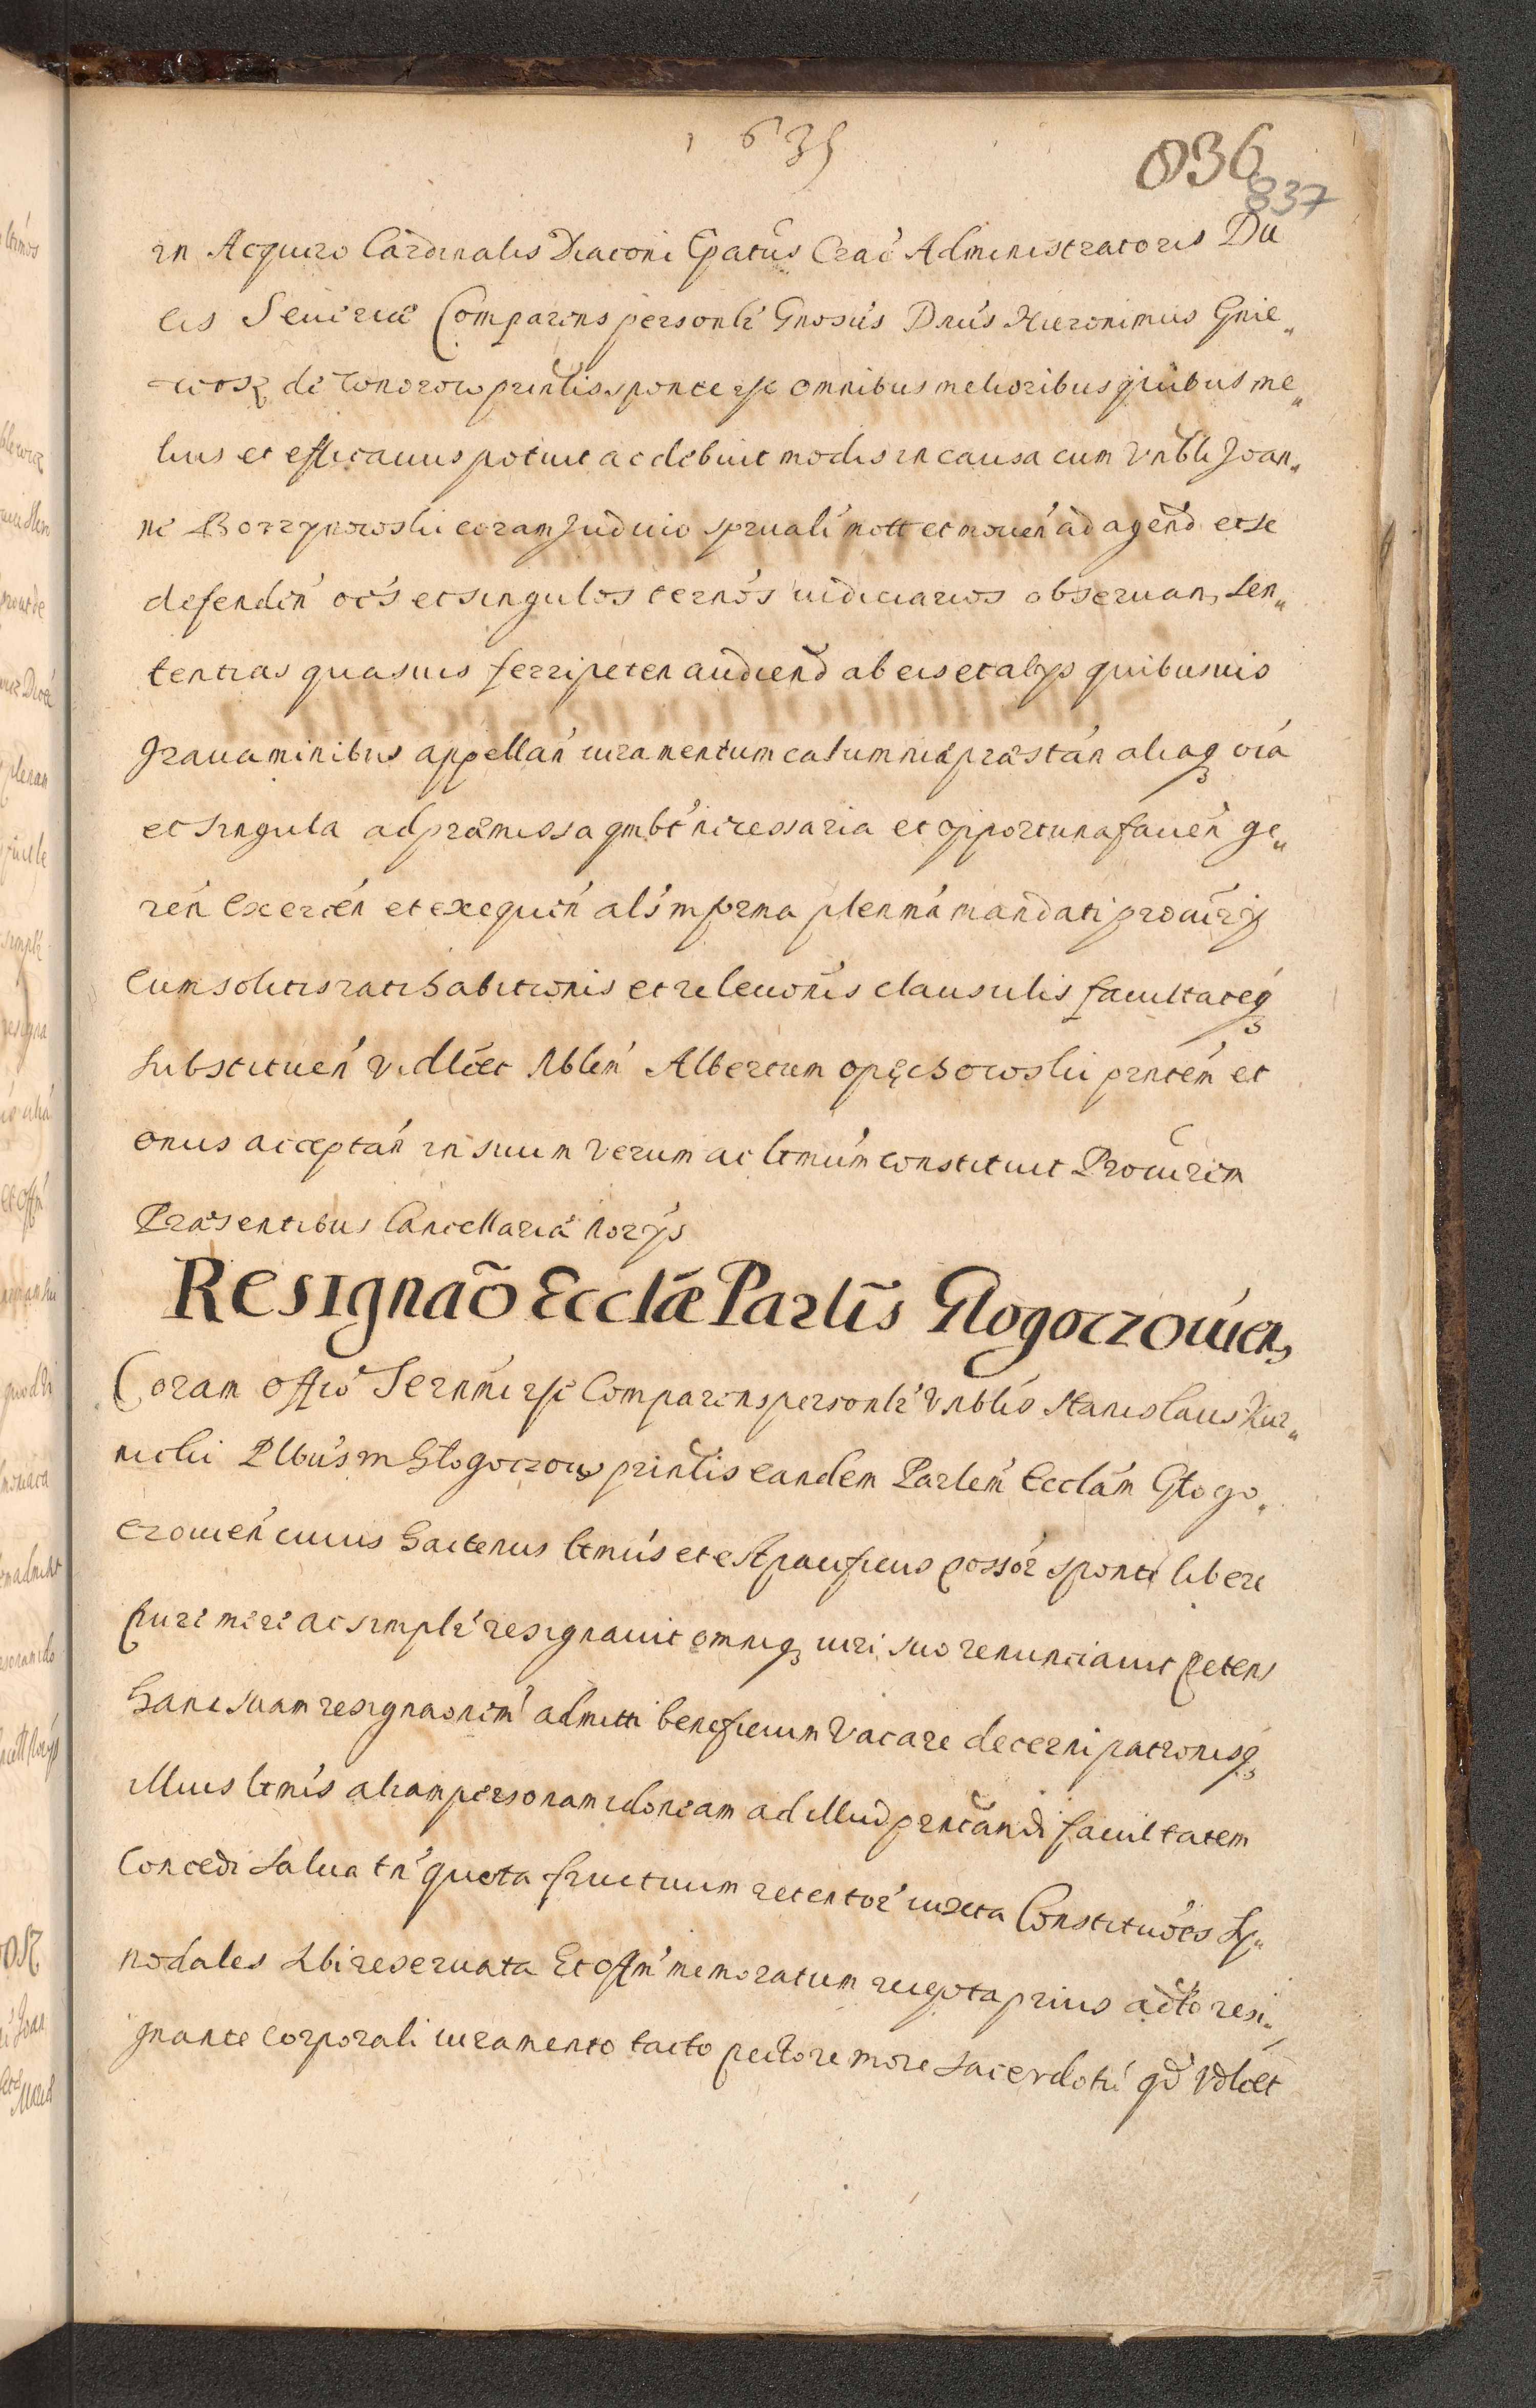 1635
836
837
in Acquiro Cardinalis Diaconi Epatus Crac Administratoris Du
cis Seueriæ Comparens personlr Gnosus Dnus Hieronimus Gnie„
wosz de Conorow prntis sponte ipse omnibus melioribus quibus me„
lius et efficacius potuit ac debuit modis in causa cum Vnbli Joan„
ne Borzynowski coram Judicio spruali mott et mouen ad agend et se
defenden oes et singulos ternos iudiciarios obseruan, Sen„
tentias quasuis ferri peten audiend ab eis et alys quibusuis
Grauaminibus appellan iuramentum calumniæ præstan aliaq oia
et singula ad præmissa qmbt necessaria et opportuna facien ge„
ren Exercen et exequen als in forma plenma mandati procurij
Cum solitis ratihabitionis et releuonis clausulis facultateq
substituen vidlcet Nblem Albertum Opęchowski prntem et
onus acceptan in suum verum ac ltmum constituit Procurem
Præsentibus Cancellariæ Norys
Resignao Ecclæ Parlis Glogoczouien,
Coram offio Sernmi ipse Comparens personlr Vnblis Stanislaus Kur„
nicki Plbus in Głogoczow printis eandem Parlem Ecclam Głogo„
czouien cuius hactenus ltmus et est pacificus possor sponte libere
pure mere ac simplr resignauit omniq iuri suo renunciauit petens
hanc suam resignaonem admitti beneficium vacare decerni patronisq
illius ltmis aliam personam idoneam ad illud prntandi facultatem
Concedi salua tn quota fructuum retentor iuxta Constituoes Sy„
nodales sibi reseruata Et offm memoratum recepta prius a dto resi„
gnante corporali iuramento tacto pectore more sacerdotu qd vdlcet